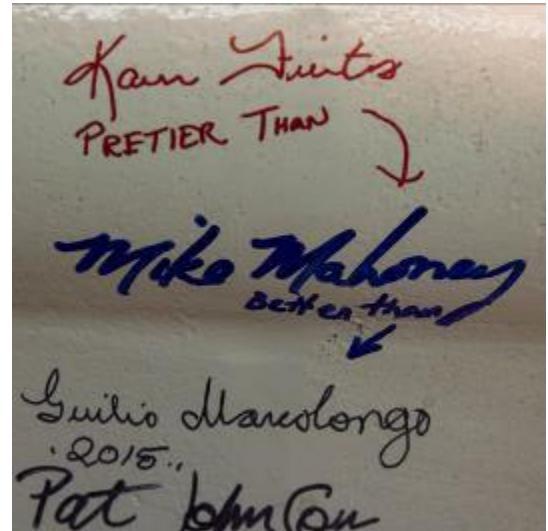 PRETIER THAN
Mike Mahoney
Better than
Guilio Marcolongo
2015
Pat Johnson